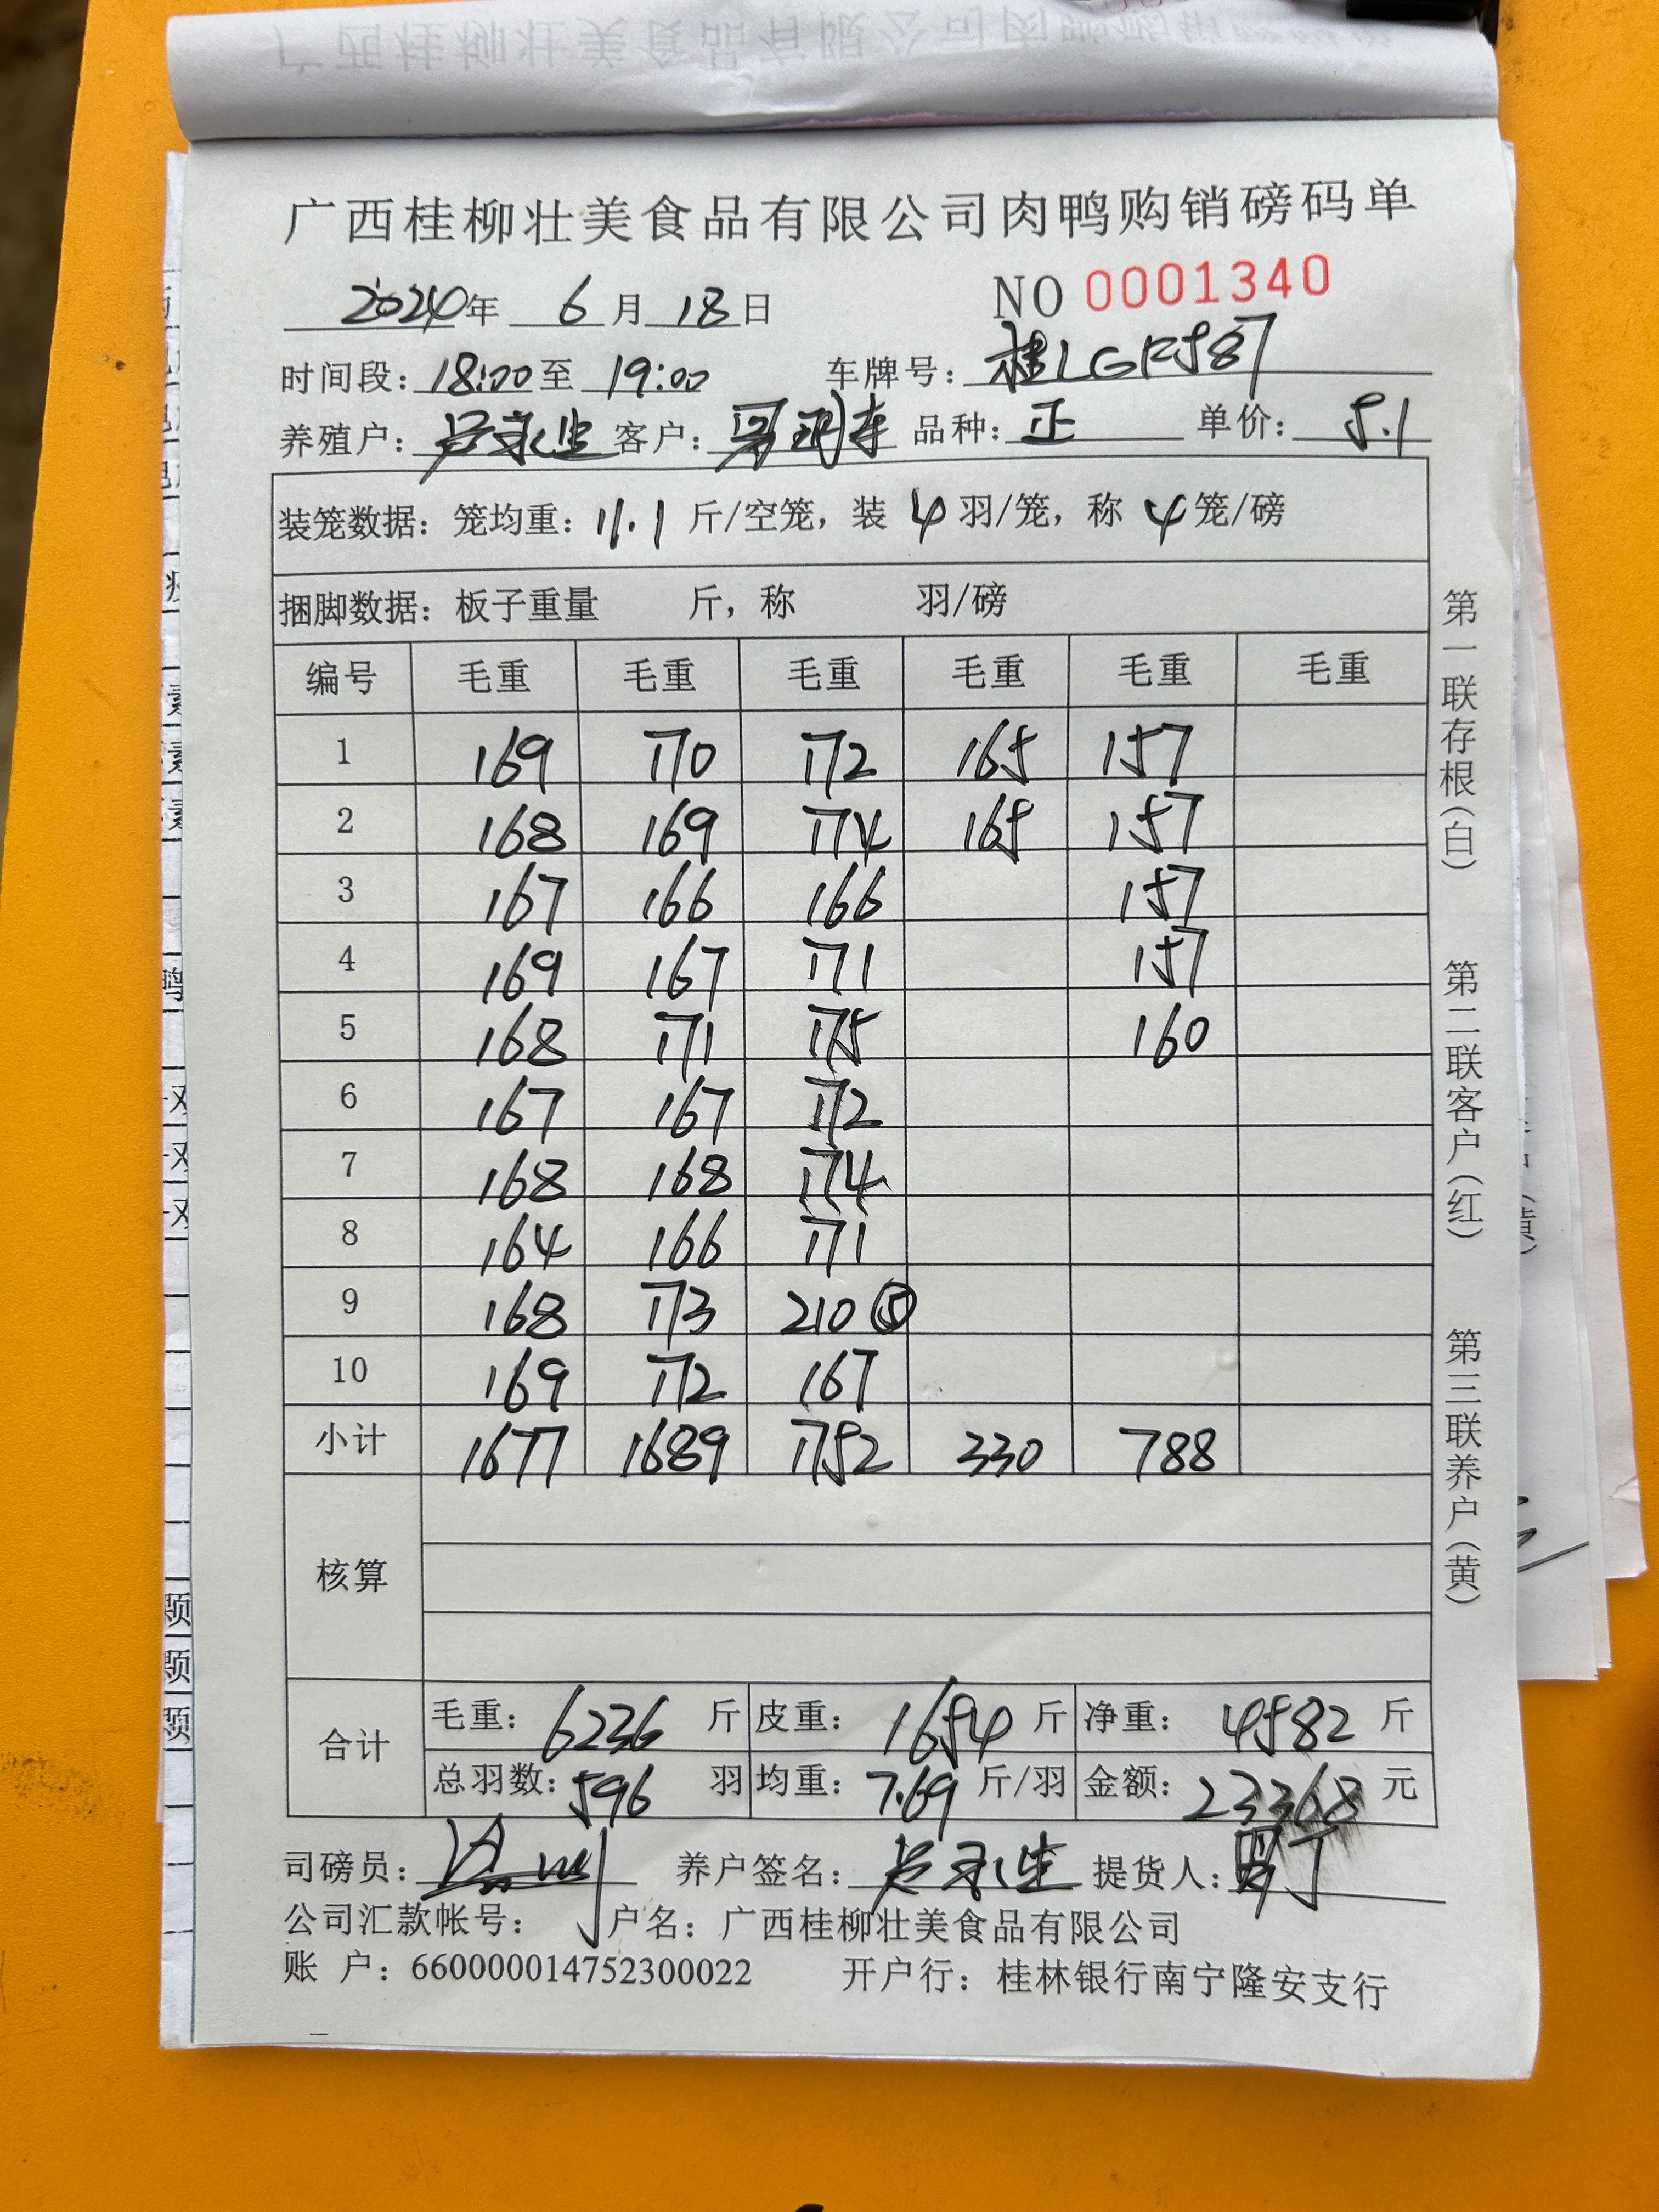 广西桂柳壮美食品有限公司肉鸭购销磅码单
2024年 6月18日 NO 0001340
时间段：18:00至 19:00 车牌号：桂LGF587
养殖户： 客户： 品种：正 单价：5.1
装笼数据：笼均重：11.1 斤/空笼，装 4 羽/笼，称 4 笼/磅
捆脚数据：板子重量 斤，称 羽/磅
编号 毛重 毛重 毛重 毛重 毛重 毛重
1 169 170 172 165 157
2 168 169 174 165 157
3 167 166 166 157
4 169 167 171 157
5 168 171 175 160
6 167 167 172
7 168 168 174
8 164 166 171
9 168 173 210 ⑤
10 169 172 167
小计 1677 1689 1752 330 788
核算
合计 毛重：6236 斤 皮重：1654 斤 净重：4582 斤
总羽数：596 羽 均重：7.69 斤/羽 金额：23368 元
司磅员： 养户签名： 提货人：
公司汇款帐号： 户名：广西桂柳壮美食品有限公司
账 户：660000014752300022 开户行：桂林银行南宁隆安支行
第一联存根（白） 第二联客户（红） 第三联养户（黄）